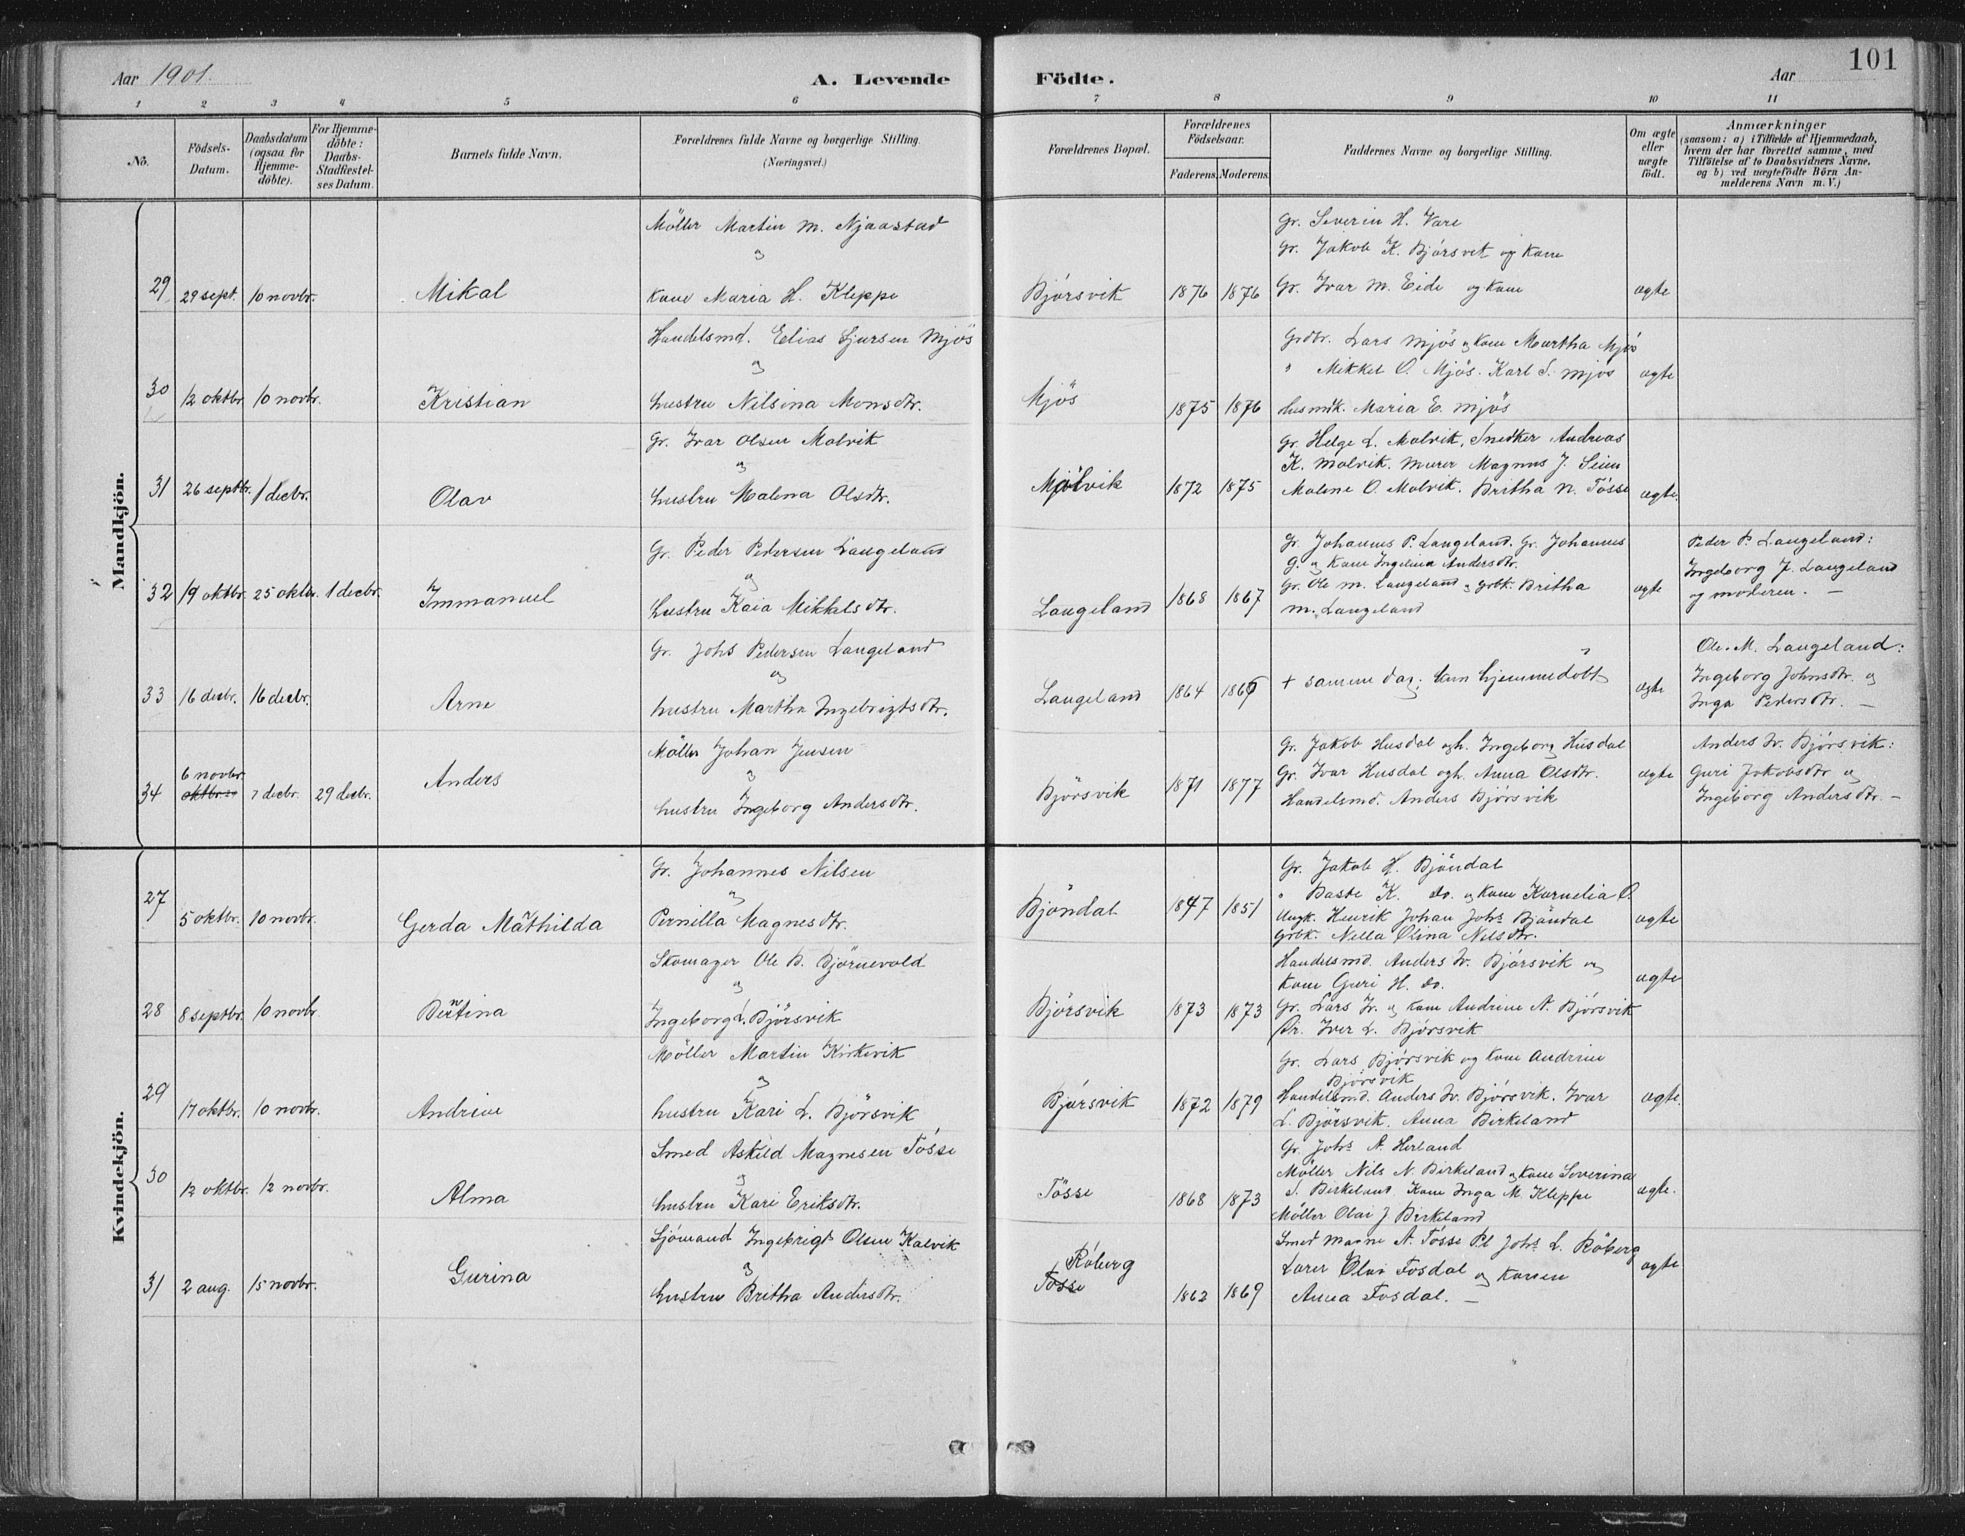 101
Aar 1901.
A. Levende Födte.
Aar
1 2 3 4 5 6 7 8 9 10 11
No.
Födsels-Datum.
Daabsdatum (ogsaa for Hjemme-döbte).
For Hjemme-döbte: Daabs-Stadfæstel-ses Datum.
Barnets fulde Navn.
Forældrenes fulde Navne og borgerlige Stilling.
(Næringsvei.)
Forældrenes Bopæl.
Forældrenes Födselsaar.
Faderens. Moderens.
Faddernes Navne og borgerlige Stilling.
Om ægte eller uægte födt.
Anmærkninger
(saasom: a) i Tilfælde af Hjemmedaab,
hvem der har forrettet samme, med
Tilföielse af to Daabsvidners Navne,
og b) ved uægtefödte Börn An-
melderens Navn m. V.)
Mandkjön.
Möller Martin M. Njaastad
og
29 29 sept. 10 novbr. Mikal
kone Maria H. Kleppe
Bjørsvik 1876 1876
Gr. Severin H. Vare
Gr. Jakob K. Bjørsvik og kone
Gr. Ivar M. Eide og kone
ægte
Handelsmd. Elias Sjursen Mjös
og
30 12 oktbr. 10 novbr. Kristian
hustru Nilsina Monsdtr.
Mjös 1875 1876
Grdbr. Lars Mjös og kone Martha Mjös
" Mikkel O. Mjös. Karl S. Mjös
Husmdk. Maria E. Mjös
ægte
Gr. Ivar Olsen Molvik
og
31 26 septbr. 1 decbr. Olav
hustru Malena Olsdtr.
Mjølvik 1872 1875
Gr. Helge L. Molvik, Snedker Andreas
K. Molvik. Murer Magnus J. Seim
Malene O. Molvik. Britha N. Tösse
ægte.
Gr. Peder Pedersen Langeland
og
32 19 oktbr. 25 oktbr. 1 decbr. Immanuel
hustru Kaia Mikkelsdtr.
Langeland 1868 1867
Gr. Johannes P. Langeland. Gr. Johannes
G. og kone Ingelina Andersdtr.
Gr. Ole M. Langeland og Grbk. Britha
M. Langeland
ægte
Peder P. Langeland:
Ingeborg J. Langeland
og moderen. —
Gr. Johs Pedersen Langeland
og
33 16 decbr. 16 decbr. Arne
hustru Martha Ingebrigtsdtr.
Langeland 1864 1866
+ samme dag; kun hjemmedøbt
ægte
Ole M. Langeland:
Ingeborg Johnsdtr. og
Inga Pedersdtr. —
Möller Johan Jensen
og
34 6 novbr. oktbr. 7 decbr. 29 decbr. Anders
hustru Ingeborg Andersdtr.
Bjørsvik 1871 1877
Gr. Jakob Husdal og h. Ingeborg Husdal
Gr. Ivar Husdal og h. Anna Olsdtr.
Handelsmd. Anders Bjørsvik
ægte
Anders Iv. Bjørsvik:
Guri Jakobsdtr og
Ingeborg Andersdtr. —
Kvindekjön.
Gr. Johannes Nilsen
og
27 5 oktbr. 10 novbr. Gerda Mathilda
Pernilla Magnesdtr.
Bjöndal 1847 1851
Gr. Jakob H. Bjöndal
" Baste K. do. og kone Kornelia O.
Ungk. Henrik Johan Johs Bjöndal
Grbk. Nella Olina Nilsdtr.
ægte
Skomager Ole B. Björnevold
og
28 8 septbr. 10 novbr. Bertina
Ingeborg L. Björsvik
Bjørsvik 1873 1873
Handelsmd. Anders Iv. Bjørsvik og
kone Guri H. do.
Gr. Lars Iv. og kone Andrine A. Bjørsvik
Dr. Iver L. Bjørsvik
ægte
Möller Martin Kirkevik
og
29 17 oktbr. 10 novbr. Andrine
hustru Kari L. Bjørsvik
Bjørsvik 1872 1879
Gr. Lars Bjørsvik og kone Andrine
Bjørsvik
Handelsmd. Anders Iv. Bjørsvik. Ivar
L. Bjørsvik. Anna Birkeland
ægte.
Smed Askild Magnesen Tösse
og
30 12 oktbr. 12 novbr. Alma
hustru Kari Eriksdtr.
Tösse 1868 1873
Gr. Johs A. Herland
Möller Nils N. Birkeland og kone Severina
S. Birkeland Kone Inga M. Kleppe
Möller Olai J Birkeland
ægte.
Sjömand Ingebrigt Olsen Kalvik
og
31 2 aug. 15 novbr. Gurina
hustru Britha Andersdtr.
Röberg
Tösse 1862 1869
Smed Magne A. Tösse Pl. Johs L. Röberg
Lærer Olav Fosdal og konen
Anna Fosdal. —
ægte